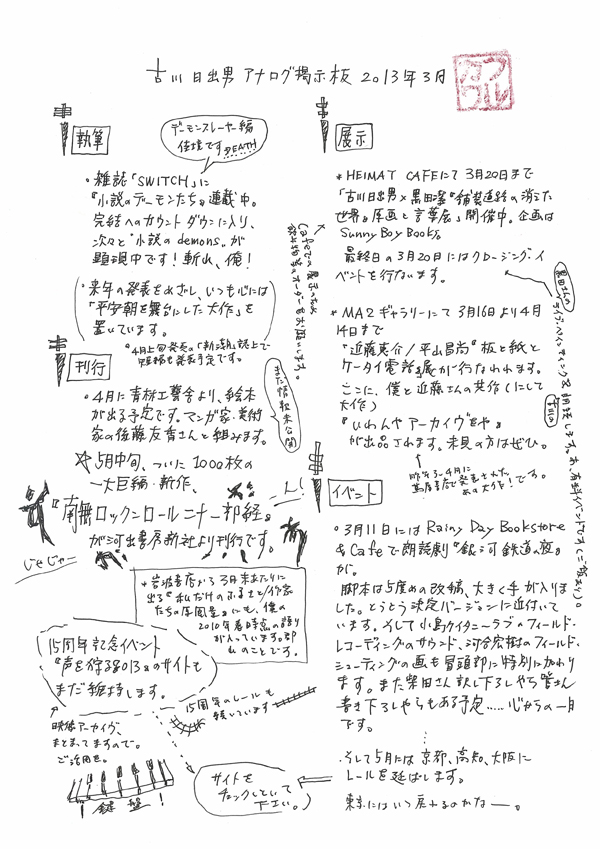 古川日出男 アナログ掲示板 2013年3月
フルカワ
執筆
デーモンスレーヤー編
佳境です DEATH
・雑誌「SWITCH」に
『小説のデーモンたち』連載中。
完結へのカウントダウンに入り、
次々と"小説のdemons"が
顕現中です！斬れ、俺！
・来年の発表をめざし、いつも心には
「平安朝を舞台にした大作」を
置いています。
*4月上旬発売の「新潮」誌上で
短編も発表予定です。
刊行
・4月に青林工藝舎より、絵本
が出る予定です。マンガ家・美術
家の後藤友香さんと組みます。
まだ情報未公開
☆5月中旬、ついに1000枚の
一大巨編・新作、
『南無ロックンロール二十一部経』
が河出書房新社より刊行です。
じゃじゃーん！
*岩波書店から3月末あたりに
出る『私だけのふるさと/作家
たちの原風景』にも、僕の
2010年春時点の語り
が入っています。郡
山のことです。
15周年記念イベント
『声を狩る2013』のサイトも
まだ維持します。
映像アーカイヴ、
まとまってますので。
ご活用を。
！鍵盤！
15周年のレールも
続いています
サイトを
チェックしといて
下さい。
展示
*HEIMAT CAFEにて3月20日まで
「古川日出男×黒田潤"舗装道路の消えた
世界"原画と言葉展」開催中。企画は
Sunny Boy Books。
最終日の3月20日にはクロージング・イ
ベントを行ないます。
Cafeでの展示につき
飲み物等のオーダーをお願いします。
黒田さんの
ライブ・ペインティングで朗読します。あ、有料イベントです（ご留意）。
*MA2ギャラリーにて3月16日より4月
14日まで
"近藤恵介/平山昌尚"板と紙と
ケータイ電話を展が行なわれます。
ここに、僕と近藤さんの共作（にして
大作）
『ひわんや アーカイヴをや』
が出品されます。未見の方はぜひ。
イベント
・3月11日にはRainy Day Bookstore
& Cafeで朗読劇『銀河鉄道の夜』
が。
脚本は5度めの改稿、大きく手が入りま
した。とうとう決定バージョンに近付いて
います。そして小島ケイタニーラブのフィールド・
レコーディングのサウンド、河合宏樹のフィールド・
シューティングの画も冒頭部に特別に加わり
ます。また柴田さん訳し下ろしやら管さん
書き下ろしやらもある予定……心からの一日
です。
そして5月には京都、高知、大阪に
レールを延ばします。
東京にはいつ戻れるのかな——。